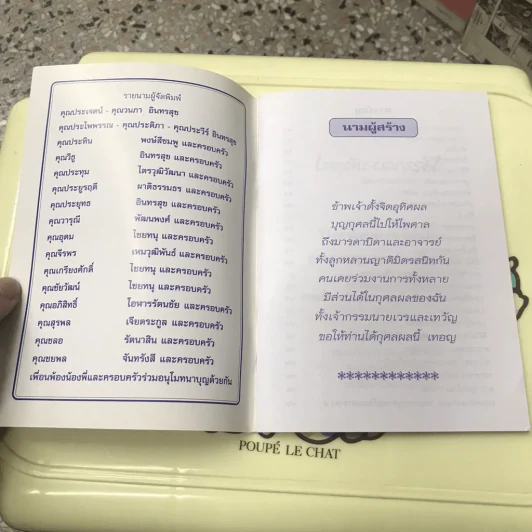 รายนามผู้จัดพิมพ์
คุณประเจตน์ - คุณวนภา อินทรสุข
คุณประไพพรรณ - คุณประติภา - คุณประวีร์ อินทรสุข
คุณประทิน พงษ์สีชมพู และครอบครัว
คุณวิฐ อินทรสุข และครอบครัว
คุณประทุม ไตรวุฒิวัฒนา และครอบครัว
คุณประยูรฤดี ผาติธรรมธร และครอบครัว
คุณประยุทธ อินทรสุข และครอบครัว
คุณวารุณี พัฒนพงศ์ และครอบครัว
คุณอุดม ไชยทนุ และครอบครัว
คุณจีรพร เหมวุฒิพันธ์ และครอบครัว
คุณเกรียงศักดิ์ ไชยทนุ และครอบครัว
คุณชัยวัฒน์ ไชยทนุ และครอบครัว
คุณอภิสิทธิ์ โอฬารรัตนชัย และครอบครัว
คุณสุรพล เจียตระกูล และครอบครัว
คุณชลอ รัตนาสิน และครอบครัว
คุณชยพล จันทรังสี และครอบครัว
เพื่อนพ้องน้องพี่และครอบครัวร่วมอนุโมทนาบุญด้วยกัน
นามผู้สร้าง
ข้าพเจ้าตั้งจิตอุทิศผล
บุญกุศลนี้ไปให้ไพศาล
ถึงมารดาบิดาและอาจารย์
ทั้งลูกหลานญาติมิตรสนิทกัน
คนเคยร่วมงานการทั้งหลาย
มีส่วนได้ในกุศลผลของฉัน
ทั้งเจ้ากรรมนายเวรและเทวัญ
ขอให้ท่านได้กุศลผลนี้ เทอญ
************
POUPÉ LE CHAT